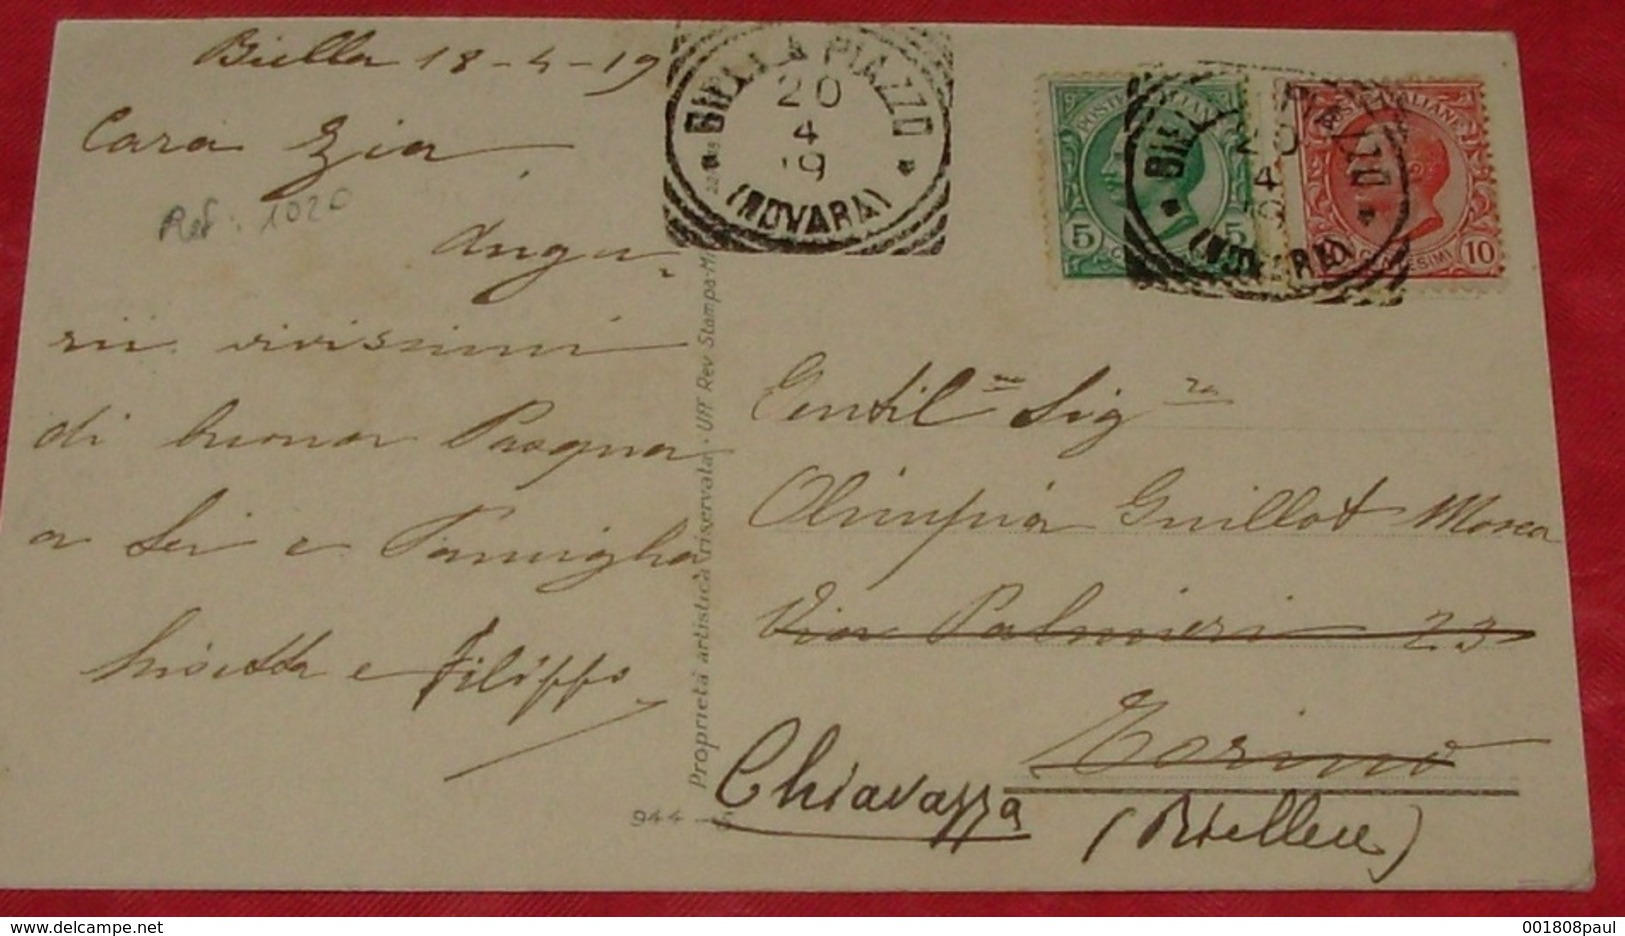 Biella 18-4-19
Cara Zia
Augu-
rii vivissimi
di buona Pasqua
a Lei e Famiglia
e Filippo
Ref: 1020
BIELLA PIAZZO
20
4
19
(NOVARA)
POSTE ITALIANE
5 5
BIELLA PIAZZO
20
4
19
(NOVARA)
POSTE ITALIANE
CENTESIMI 10
Proprietà artistica riservata - Uff Rev Stampa-Mi
944
Gentil ma Sig ra
Olimpia Guillot Mosca
Via Palmieri 23
Torino
Chiavazza
(Biellese)
001808paul
delcampe.net